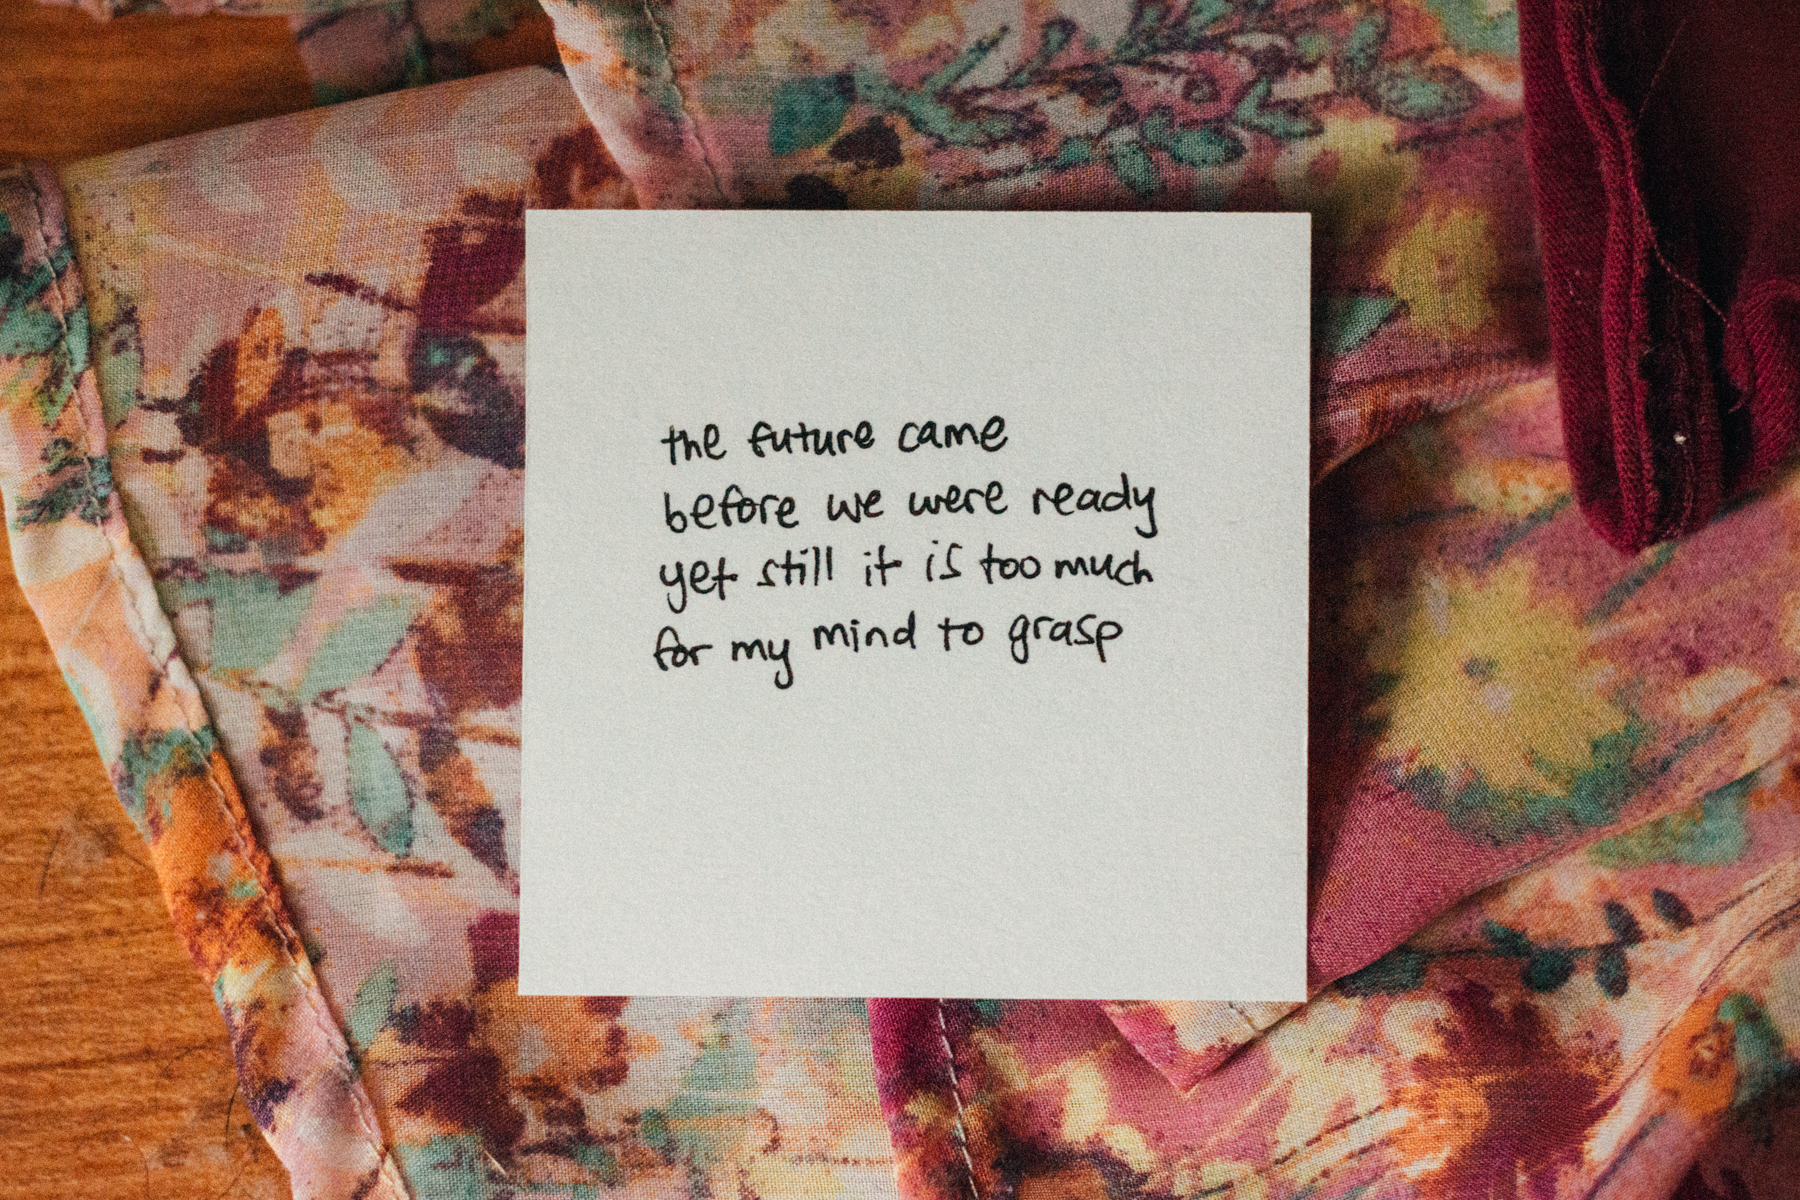 the future came
before we were ready
yet still it is too much
for my mind to grasp